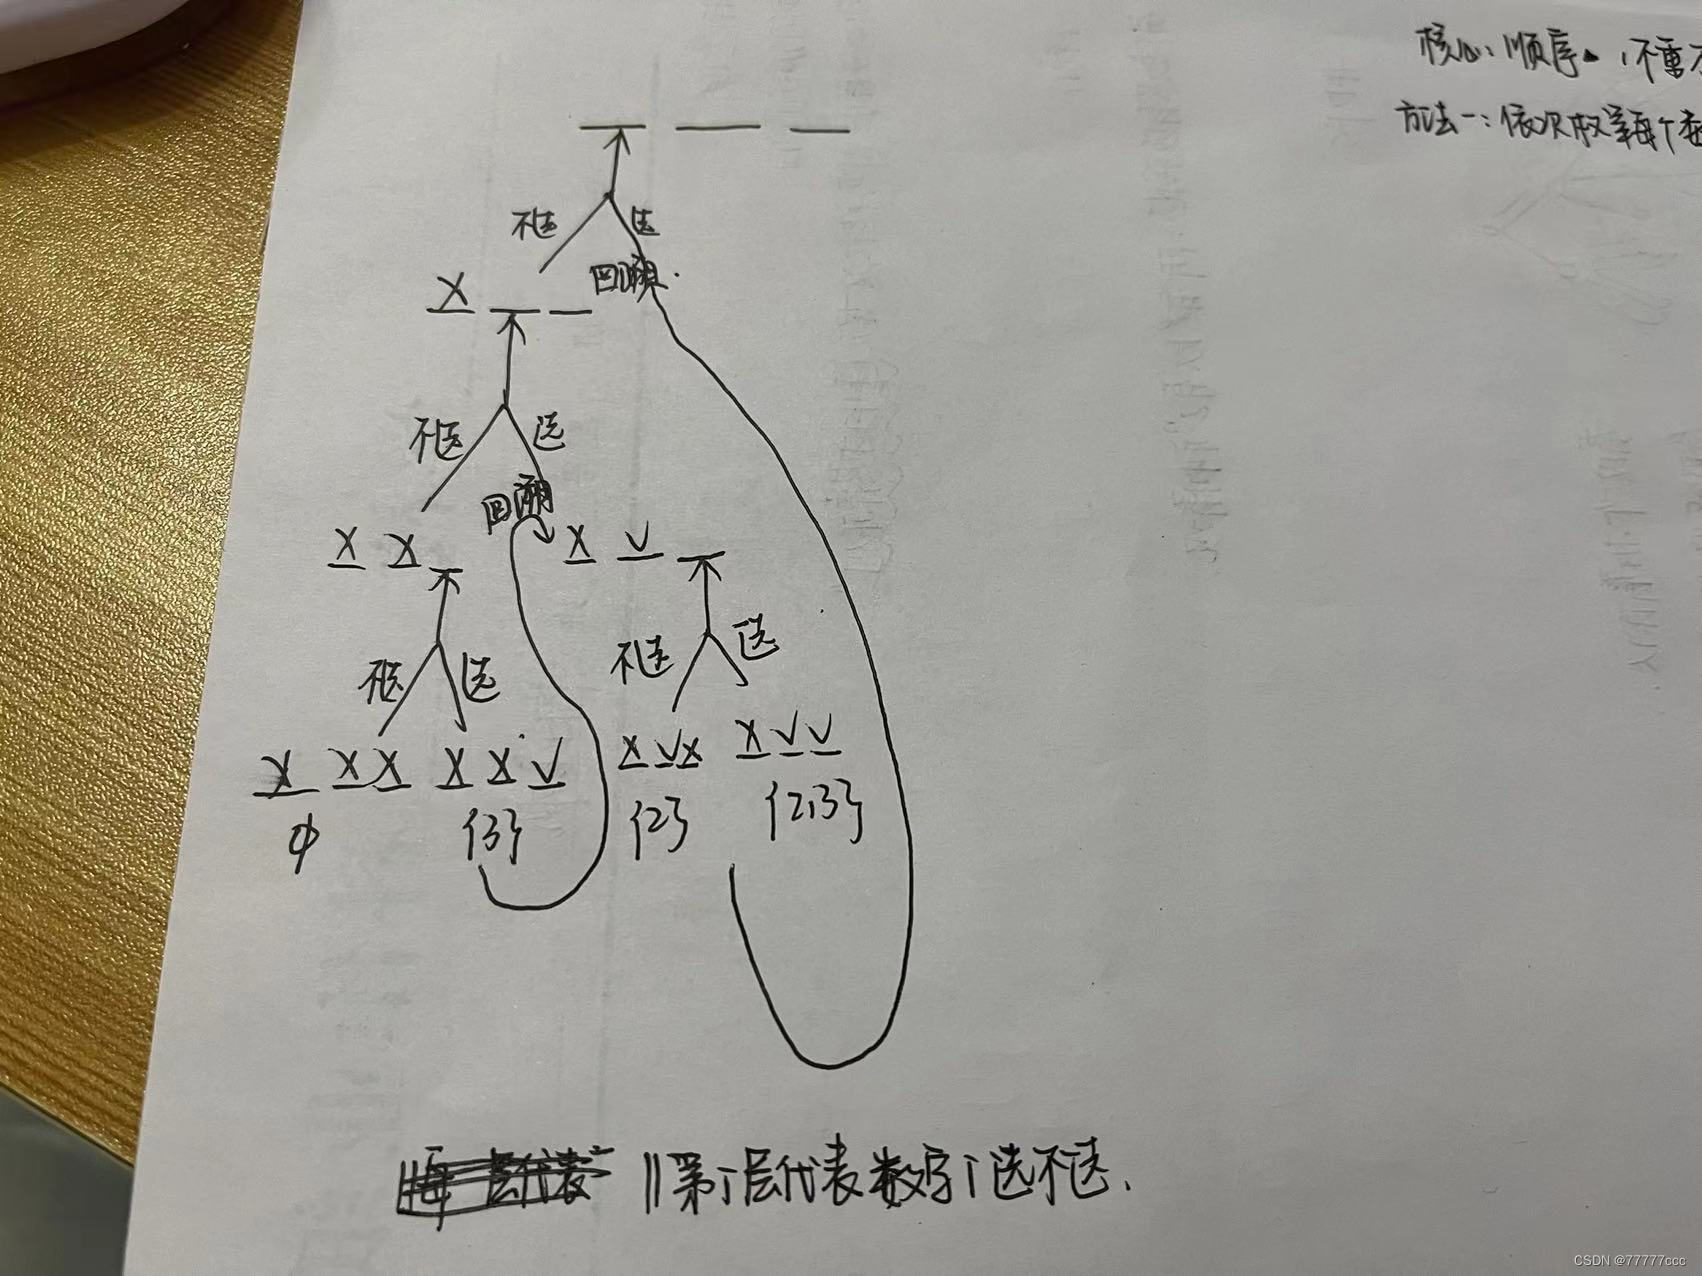 核心:顺序。,不重
方法一:依次枚举每个
不选 选
回溯.
X
不选 选
回溯
X X X √
不选 选 不选 选
X X X X X √ X √ X X √ √
φ {3} {2} {2,3}
每 层代表
//第i层代表数字i选不选.
CSDN @77777ccc